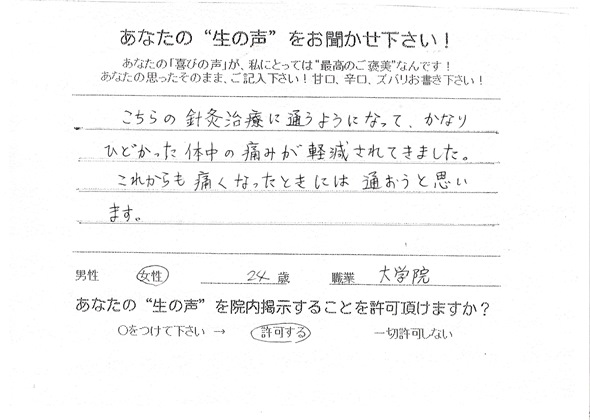 あなたの“生の声”をお聞かせ下さい！
あなたの「喜びの声」が、私にとっては“最高のご褒美”なんです！
あなたの思ったそのまま、ご記入下さい！甘口、辛口、ズバリお書き下さい！
こちらの針灸治療に通うようになって、かなり
ひどかった体中の痛みが軽減されてきました。
これからも痛くなったときには通おうと思い
ます。
男性 女性 24 歳 職業 大学院
あなたの“生の声”を院内掲示することを許可頂けますか？
○をつけて下さい → 許可する 一切許可しない